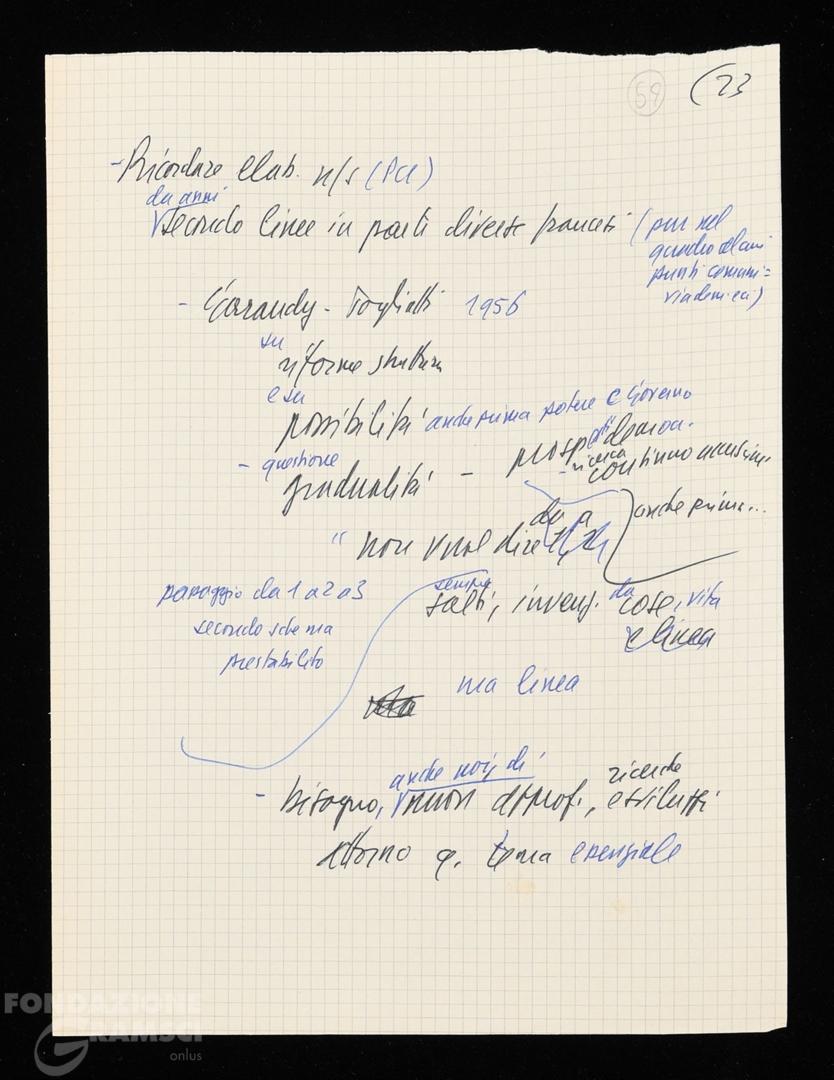 59 (23
- Ricordare elab. n/s (PCI)
da anni
secondo linee in parti diverse francesi (pur nel
quadro di
punti comuni =
- Garaudy - Togliatti 1956
su
riforme struttura
e su
possibilità anche prima potere e Governo
- questione prosp. democr.
gradualità - ricerca continuo
da a
anche prima...
" non vuol dire
passaggio da 1 a 2 a 3
secondo schema
prestabilito
sempre
salti, invenz. da cose, vita
e linea
ma linea
anche noi, di
- bisogno, nuovi approf., ricerche e sviluppi
attorno q. tema essenziale
FONDAZIONE
GRAMSCI
onlus